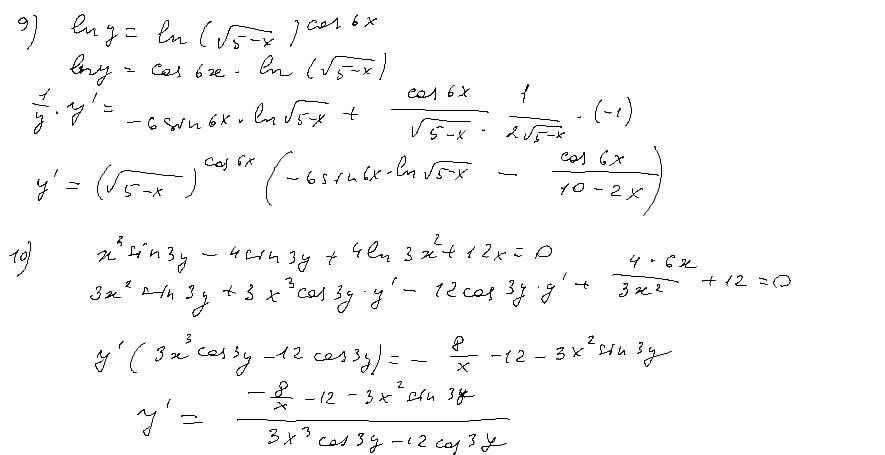 9) ln y = ln (√(5-x))^(cos 6x)
ln y = cos 6x · ln (√(5-x))
1/y · y' = -6 sin 6x · ln √(5-x) + cos 6x / √(5-x) · 1 / (2√(5-x)) · (-1)
y' = (√(5-x))^(cos 6x) (-6 sin 6x · ln √(5-x) - cos 6x / (10-2x))
10) x³ sin 3y - 4 sin 3y + 4 ln 3x² + 12x = 0
3x² sin 3y + 3x³ cos 3y · y' - 12 cos 3y · y' + (4 · 6x) / (3x²) + 12 = 0
y' (3x³ cos 3y - 12 cos 3y) = - 8/x - 12 - 3x² sin 3y
y' = (- 8/x - 12 - 3x² sin 3y) / (3x³ cos 3y - 12 cos 3y)